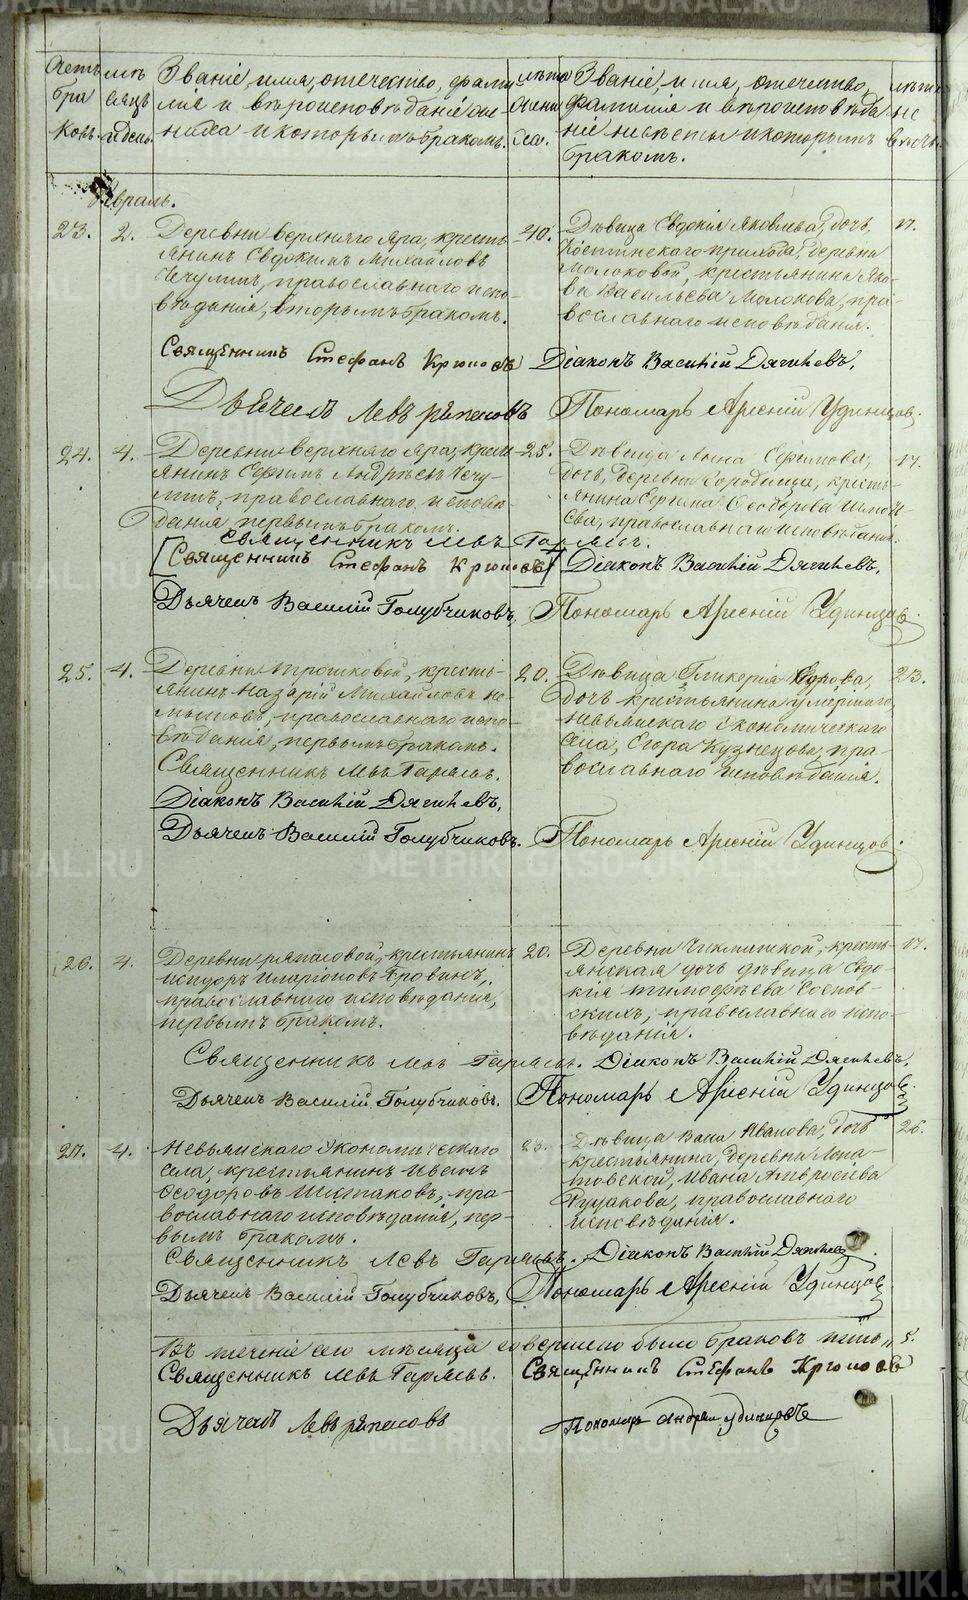 Счетъ бра ковъ.
мѣ сяцъ и день.
Званіе, имя, отечество, фами
лія и вѣроисповѣданіе же
ниха и которымъ бракомъ.
лѣта жени ха.
Званіе, имя, отечество,
фамилія и вѣроисповѣда
ніе невѣсты и которымъ
бракомъ.
лѣта не вѣсты
Февраль.
23. 2. Деревни верхняго Яра, кресть
янинъ Евдокимъ Михайловъ
Чечулинъ, православнаго испо-
вѣданія, вторымъ бракомъ.
40.
Дѣвица Евдокія Яковлева, дочь,
Костинскаго прихода, деревни
Молоковой, крестьянина Яко-
ва Васильева Молокова, пра-
вославнаго исповѣданія.
17.
Священникъ Стефанъ Діаконъ Василій Дягилевъ.
Дьячекъ Левъ Ряпасовъ Пономарь Арсеній Удинцов.
24. 4. Деревни верхняго Яра, кресть
янинъ Андреевъ Чечу-
линъ, православнаго исповѣ-
данія первымъ бракомъ.
25.
Дѣвица Анна
дочь, деревни Городища, кресть-
янина Ѳеодорова
православнаго исповѣданія.
17.
Священникъ Левъ
[Священникъ Стефанъ Діаконъ Василій Дягилевъ.
Дьячекъ Василій Голубчиковъ, Пономарь Арсеній Удинцовъ.
25. 4. Деревни Трошковой, кресть-
янинъ Назарій Михайловъ
православнаго испо-
вѣданія, первымъ бракомъ.
20.
Дѣвица Гликерія Егорова,
дочь крестьянина умершаго,
Невьянскаго Экономическаго
села, Егора Кузнецова, пра-
вославнаго исповѣданія.
23.
Священникъ Левъ
Діаконъ Василій Дягилевъ,
Дьячекъ Василій Голубчиковъ. Пономарь Арсеній Удинцов.
26. 4. Деревни Ряпасовой, крестьянинъ
Исидоръ Иларіоновъ
православнаго исповѣданія,
первымъ бракомъ.
20.
Деревни кресть-
янская дочь дѣвица Евдо-
кія Тимофѣева Соснов-
скихъ, православнаго испо-
вѣданія.
17.
Священникъ Левъ Діаконъ Василій Дягилевъ,
Дьячекъ Василій Голубчиковъ. Пономарь Арсеній Удинцовъ.
27. 4. Невьянскаго Экономическаго
села, крестьянинъ Иванъ
Ѳеодоровъ пра-
вославнаго исповѣданія, пер-
вымъ бракомъ.
23.
Дѣвица Иванова, дочь
крестьянина, деревни Лопа-
товской, Ивана Амвросіева
Рудакова, православнаго
исповѣданія.
26.
Священникъ Левъ Діаконъ Василій Дягилевъ.
Дьячекъ Василій Голубчиковъ, Пономарь Арсеній Удинцов.
Въ теченіе сего мѣсяца совершено было браковъ пять „ 5.
Священникъ Левъ Священникъ Стефанъ
Дьячекъ Левъ Ряпасовъ Пономарь Андрей Удинцовъ
METRIKI.GASO-URAL.RU